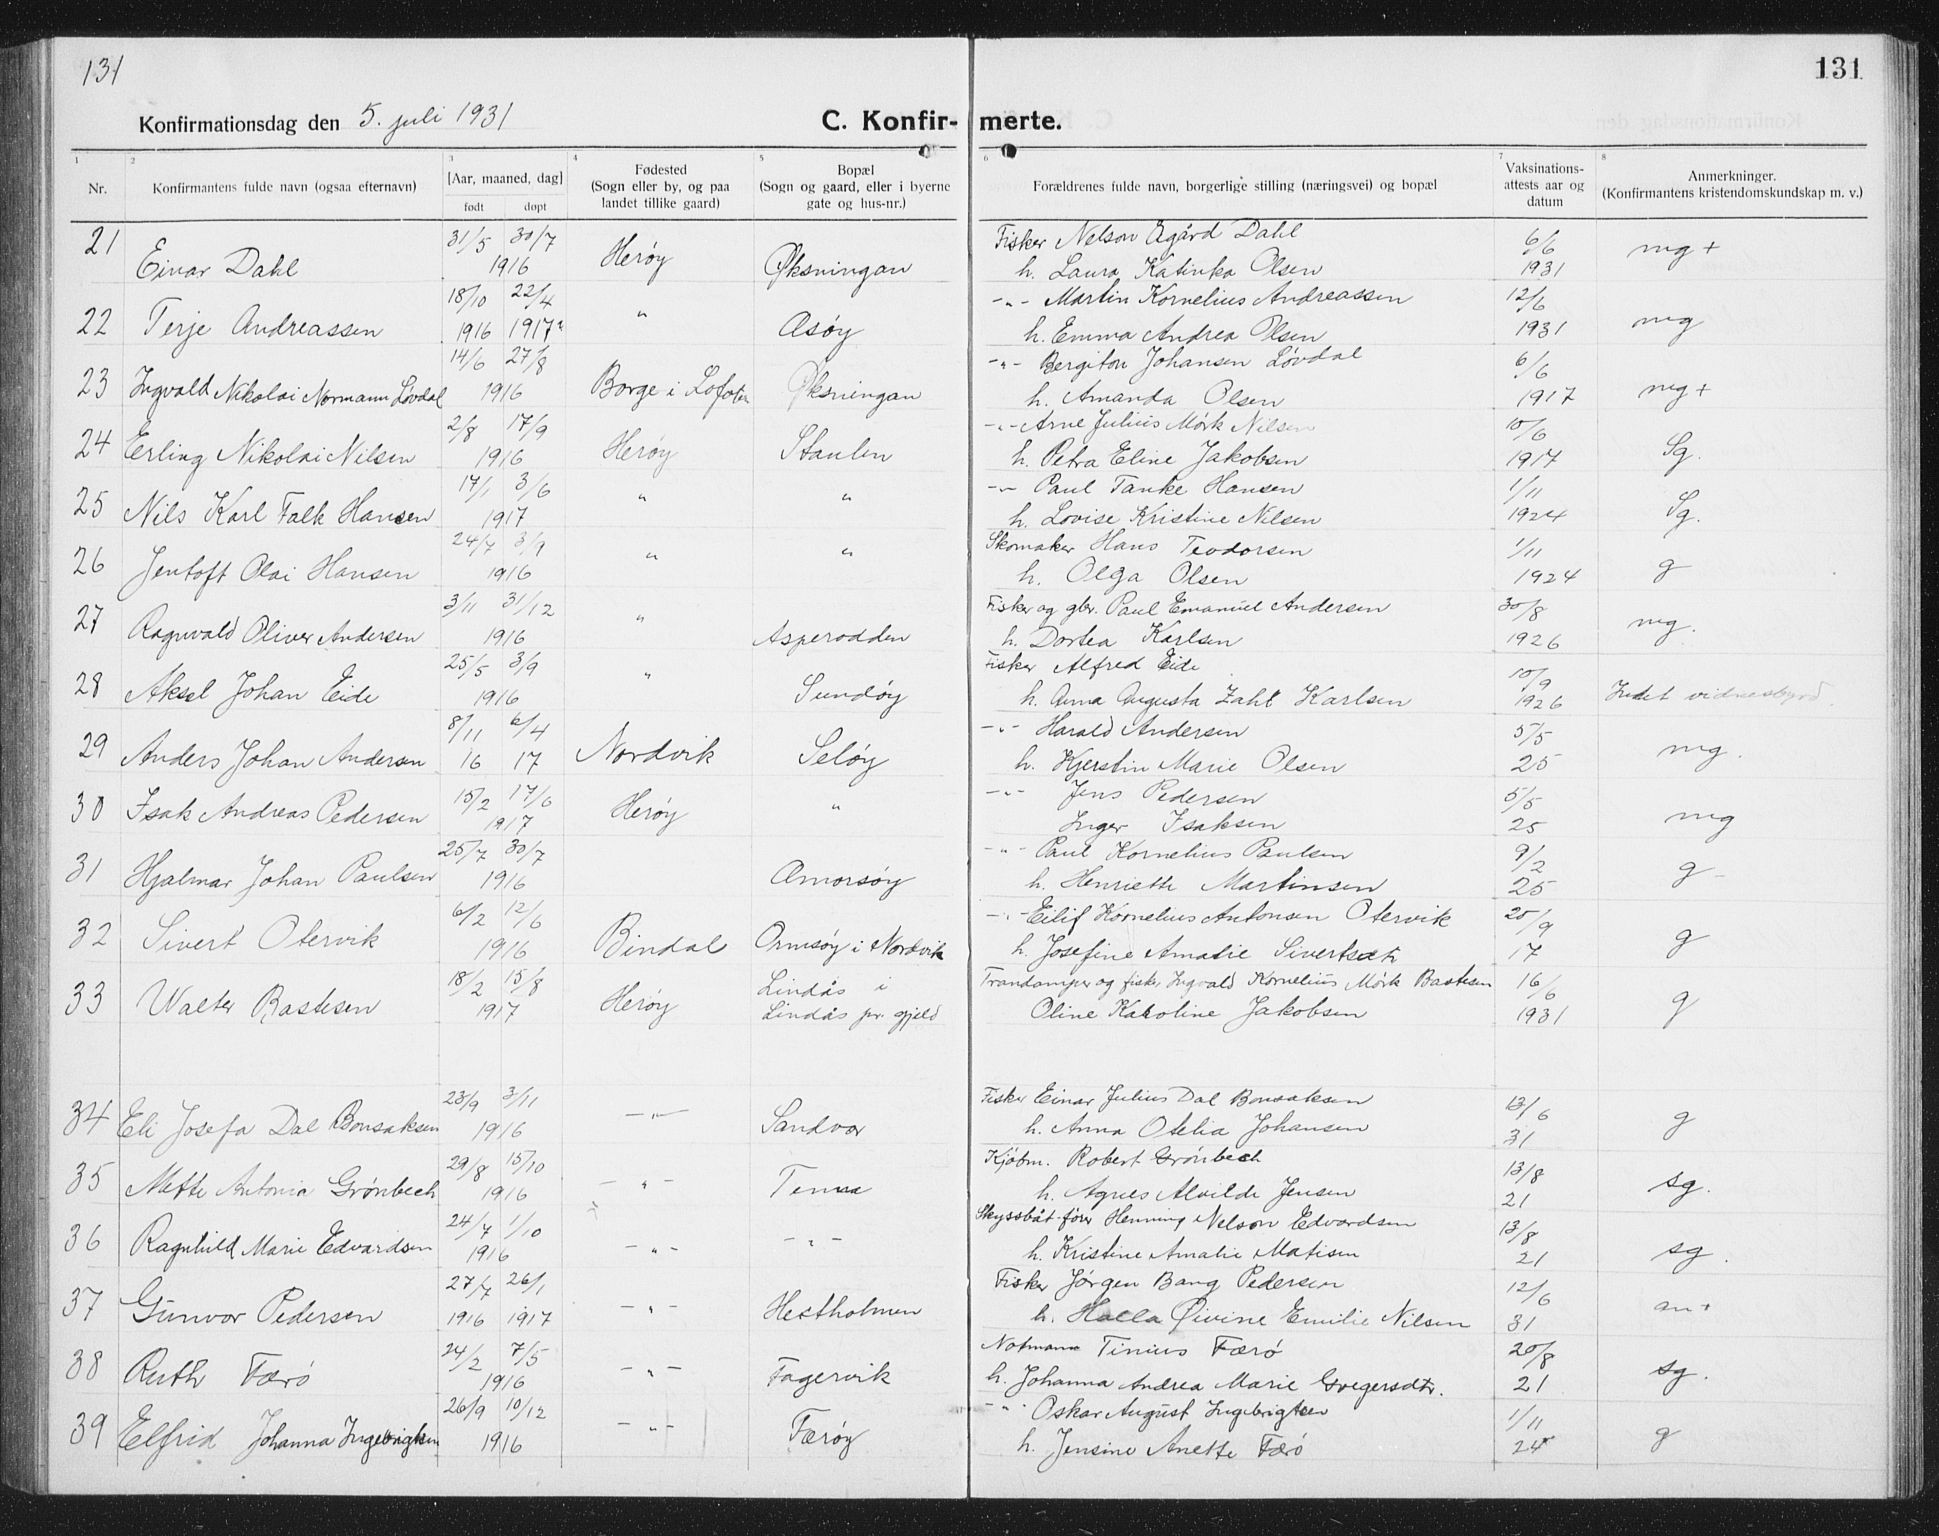 131
131
Konfirmationsdag den 5. juli 1931
C. Konfir-merte.
1 2 3 4 5 6 7 8
Nr. Konfirmantens fulde navn (ogsaa efternavn) [Aar, maaned, dag] født døpt Fødested (Sogn eller by, og paa landet tillike gaard) Bopæl (Sogn og gaard, eller i byerne gate og hus-nr.) Forældrenes fulde navn, borgerlige stilling (næringsvei) og bopæl Vaksinations-attests aar og datum Anmerkninger. (Konfirmantens kristendomskundskap m. v.)
21 Einar Dahl 31/5 30/7 1916 Herøy Øksningan Fisker Nelson Ågård Dahl h. Laura Katinka Olsen 6/6 1931 mg +
22 Terje Andreassen 18/10 1916 22/4 1917 " Åsøy -"- Martin Kornelius Andreassen h. Emma Andrea Olsen 12/6 1931 mg
23 Ingvald Nikolai Normann Løvdal 14/6 27/8 1916 Borge i Lofoten Øksningan -"- Bergiton Johansen Løvdal h. Amanda Olsen 6/6 1917 mg +
24 Erling Nikolai Nilsen 2/8 17/9 1916 Herøy Staulen -"- Arne Julius Mørk Nilsen h. Petra Eline Jakobsen 10/6 1917 Sg.
25 Nils Karl Falk Hansen 17/1 3/6 1917 " " -"- Paul Tanke Hansen h. Lovise Kristine Nilsen 1/11 1924 Sg.
26 Jentoft Olai Hansen 24/7 3/9 1916 " " Skomaker Hans Teodorsen h. Olga Olsen 1/11 1924 g
27 Ragnvald Oliver Andersen 3/11 31/12 1916 " Asperodden Fisker og gbr. Paul Emanuel Andersen h. Dortea Karlsen 30/8 1926 mg.
28 Aksel Johan Eide 25/5 3/9 1916 " Sundøy Fisker Alfred Eide h. Anna Augusta Zahl Karlsen 10/9 1926 Intet vidnesbyrd.
29 Anders Johan Andersen 8/11 16 6/4 17 Nordvik Seløy -"- Harald Andersen h. Kjerstin Marie Olsen 5/5 25 mg.
30 Isak Andreas Pedersen 15/2 17/6 1917 Herøy " -"- Jens Pedersen Inger Isaksen 5/5 25 mg
31 Hjalmar Johan Paulsen 25/7 30/7 1916 Omorsøy -"- Paul Kornelius Paulsen h. Henriette Martinsen 9/2 25 g -
32 Sivert Otervik 6/2 12/6 1916 Bindal Ormsøy i Nordvik -"- Eilif Kornelius Antonsen Otervik h. Josefine Amalie 25/9 17 g
33 Walter Bastesen 18/2 15/8 1917 Herøy Lindås i Lindås pr. gjeld Trandamper og fisker Ingvald Kornelius Mørk Bastesen Oline Karoline Jakobsen 16/6 1931 g
34 Eli Josefa Dal Bonsaksen 23/9 3/11 1916 -"- Sandvær Fisker Einar Julius Dal Bonsaksen h. Anna Otelia Johansen 13/6 31 g
35 Mette Antonia Grønbech 29/8 15/10 1916 -"- Tenna Kjøbm. Robert Grønbech h. Agnes Alvilde Jensen 13/8 21 sg.
36 Ragnhild Marie Edvardsen 24/7 1/10 1916 -"- -"- Skyssbåt-fører Henning Nelson Edvardsen h. Kristine Amalie Matisen 13/8 21 sg.
37 Gunvor Pedersen 27/7 1916 26/1 1917 -"- Hestholmen Fisker Jørgen Bang Pedersen h. Øivine Emilie Nilsen 12/6 31
38 Ruth Færø 24/2 7/5 1916 -"- Fagervik Notmann Tinius Færø h. Johanna Andrea Marie Gregersdtr. 20/8 21 sg.
39 Elfrid Johanna Ingebrigtsen 26/9 10/12 1916 -"- Færøy -"- Oskar August Ingebrigtsen h. Jensine Anette Færø 1/11 24 g